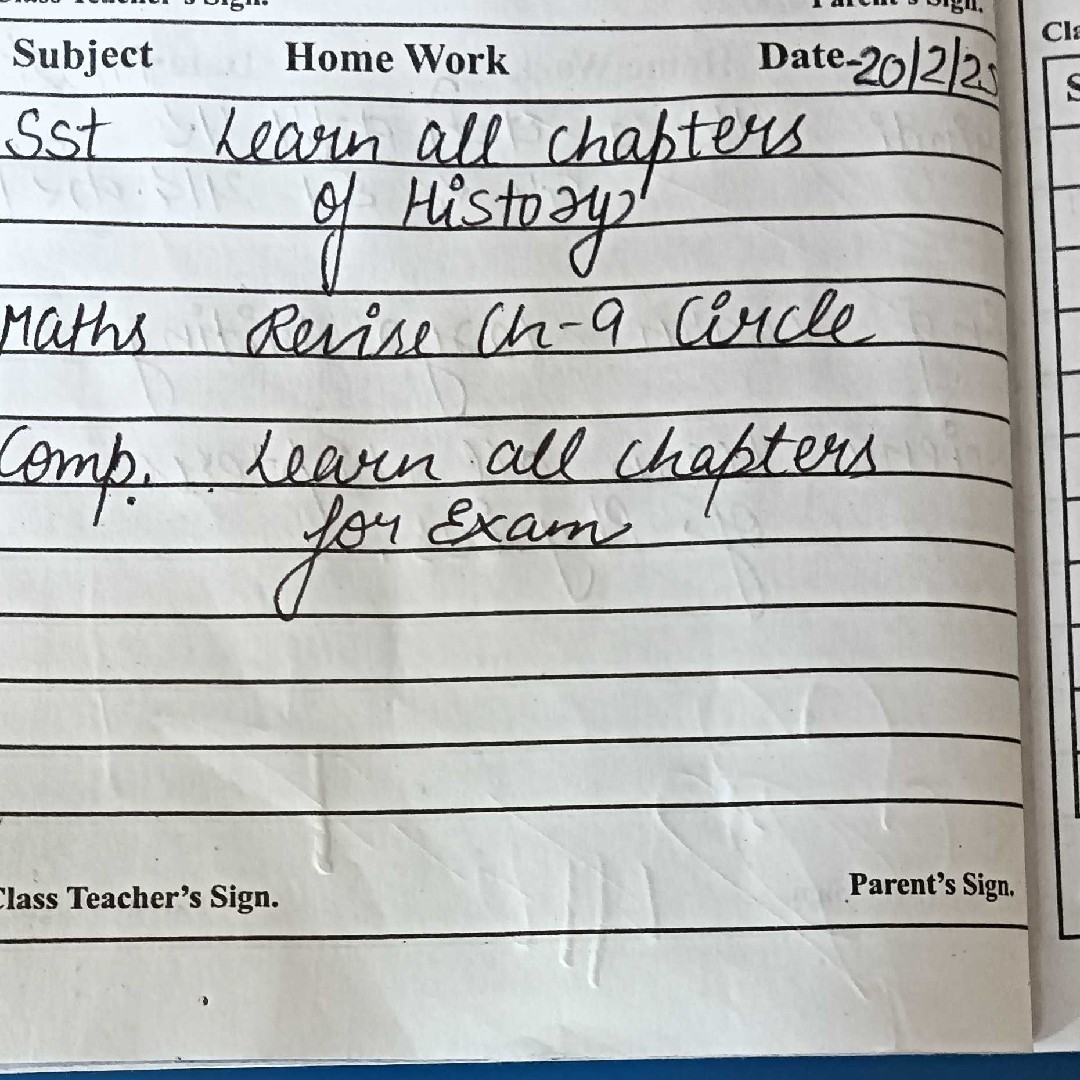 Parent's Sign.
Subject Home Work Date-20/2/25
Sst Learn all chapters
of History
Maths Revise Ch-9 Circle
Comp. Learn all chapters
for Exam
Class Teacher's Sign. Parent's Sign.